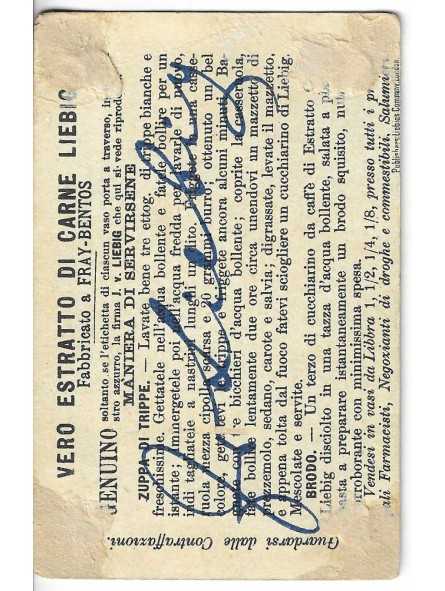 VERO ESTRATTO DI CARNE LIEBIG
Fabbricato a FRAY-BENTOS
GENUINO soltanto se l'etichetta di ciascun vaso porta a traverso, in
stro azzurro, la firma J. v. LIEBIG che qui si vede riprod
MANIERA DI SERVIRSENE
ZUPPA DI TRIPPE. — Lavate bene tre ettog. di trippe bianche e
freschissime. Gettatele nell'acqua bollente e fatele bollire per un
istante; immergetele poi nell'acqua fredda per lavarle di nuovo,
indi tagliatele a nastrini lunghi un dito. Friggete in una casse-
ruola mezza cipolla scarsa e 20 grammi burro; ottenuto un bel
colore, gettatevi le trippe e friggete ancora alcuni minuti. Ba-
gnate con bicchieri d'acqua bollente; coprite la casseruola,
fate bollire lentamente due ore circa unendovi un mazzetto di
prezzemolo, sedano, carote e salvia; digrassate, levate il mazzetto,
e appena tolta dal fuoco fatevi sciogliere un cucchiarino di Liebig.
Mescolate e servite.
BRODO. — Un terzo di cucchiarino da caffè di Estratto
Liebig disciolto in una tazza d'acqua bollente, salata a
basta a preparare istantaneamente un brodo squisito, nu
orroborante con minimissima spesa.
Vendesi in vasi da Libbra 1, 1/2, 1/4, 1/8, presso tutti i pr
ali Farmacisti, Negozianti di droghe e commestibili, Salumieri
Guardarsi dalle Contraffazioni.
Publishers: Liebig's Company, London.
J v Liebig